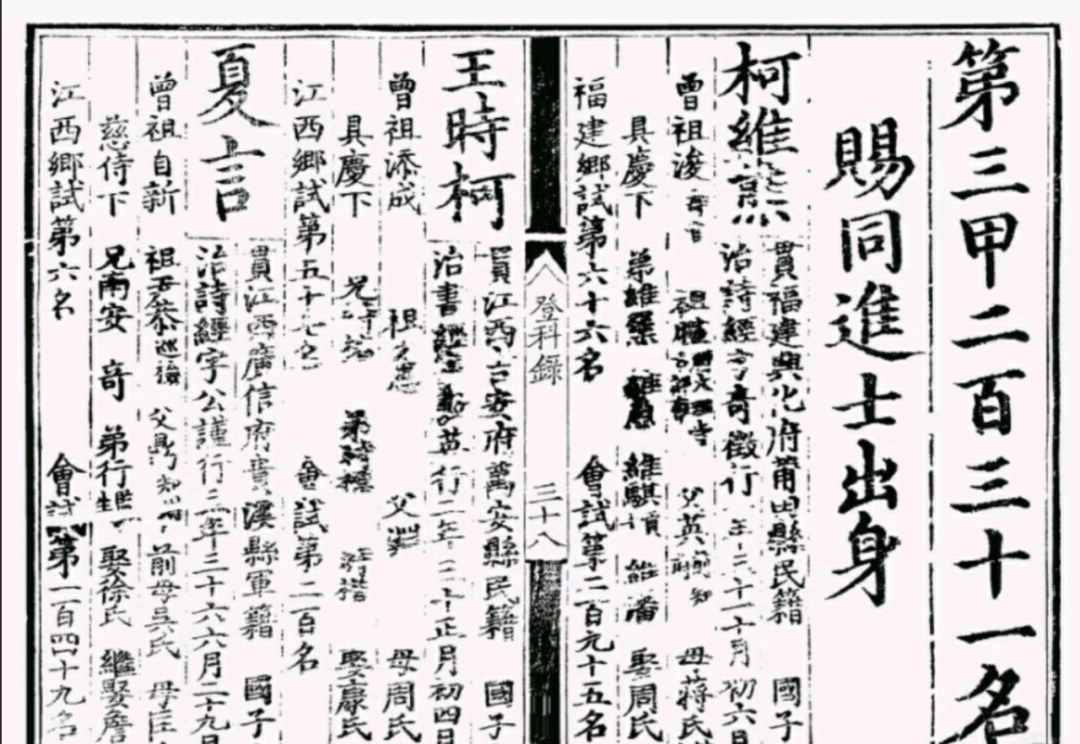 第三甲二百三十一名
賜同進士出身
柯維熊
貫福建興化府莆田縣民籍 國子
治詩經字奇徵行 年三十一十月初六日
曾祖浚 母蔣氏
具慶下 弟維 維騏 娶周氏
福建鄉試第六十六名 會試第二百九十五名
登科錄 三十八
王時柯
貫江西吉安府萬安縣民籍 國子
治書經 英行二年三十正月初四日
曾祖添成 祖 父 母周氏
具慶下 兄時 弟時 娶康氏
江西鄉試第五十七名 會試第二百名
夏言
貫江西廣信府貴溪縣軍籍 國子
治詩經字公謹行二年三十六六月二十九日
曾祖自新 祖 父鼎 前母吳氏 母匡
慈侍下 兄南安 奇 弟行 娶徐氏 繼娶詹
江西鄉試第六名 會試第一百四十九名